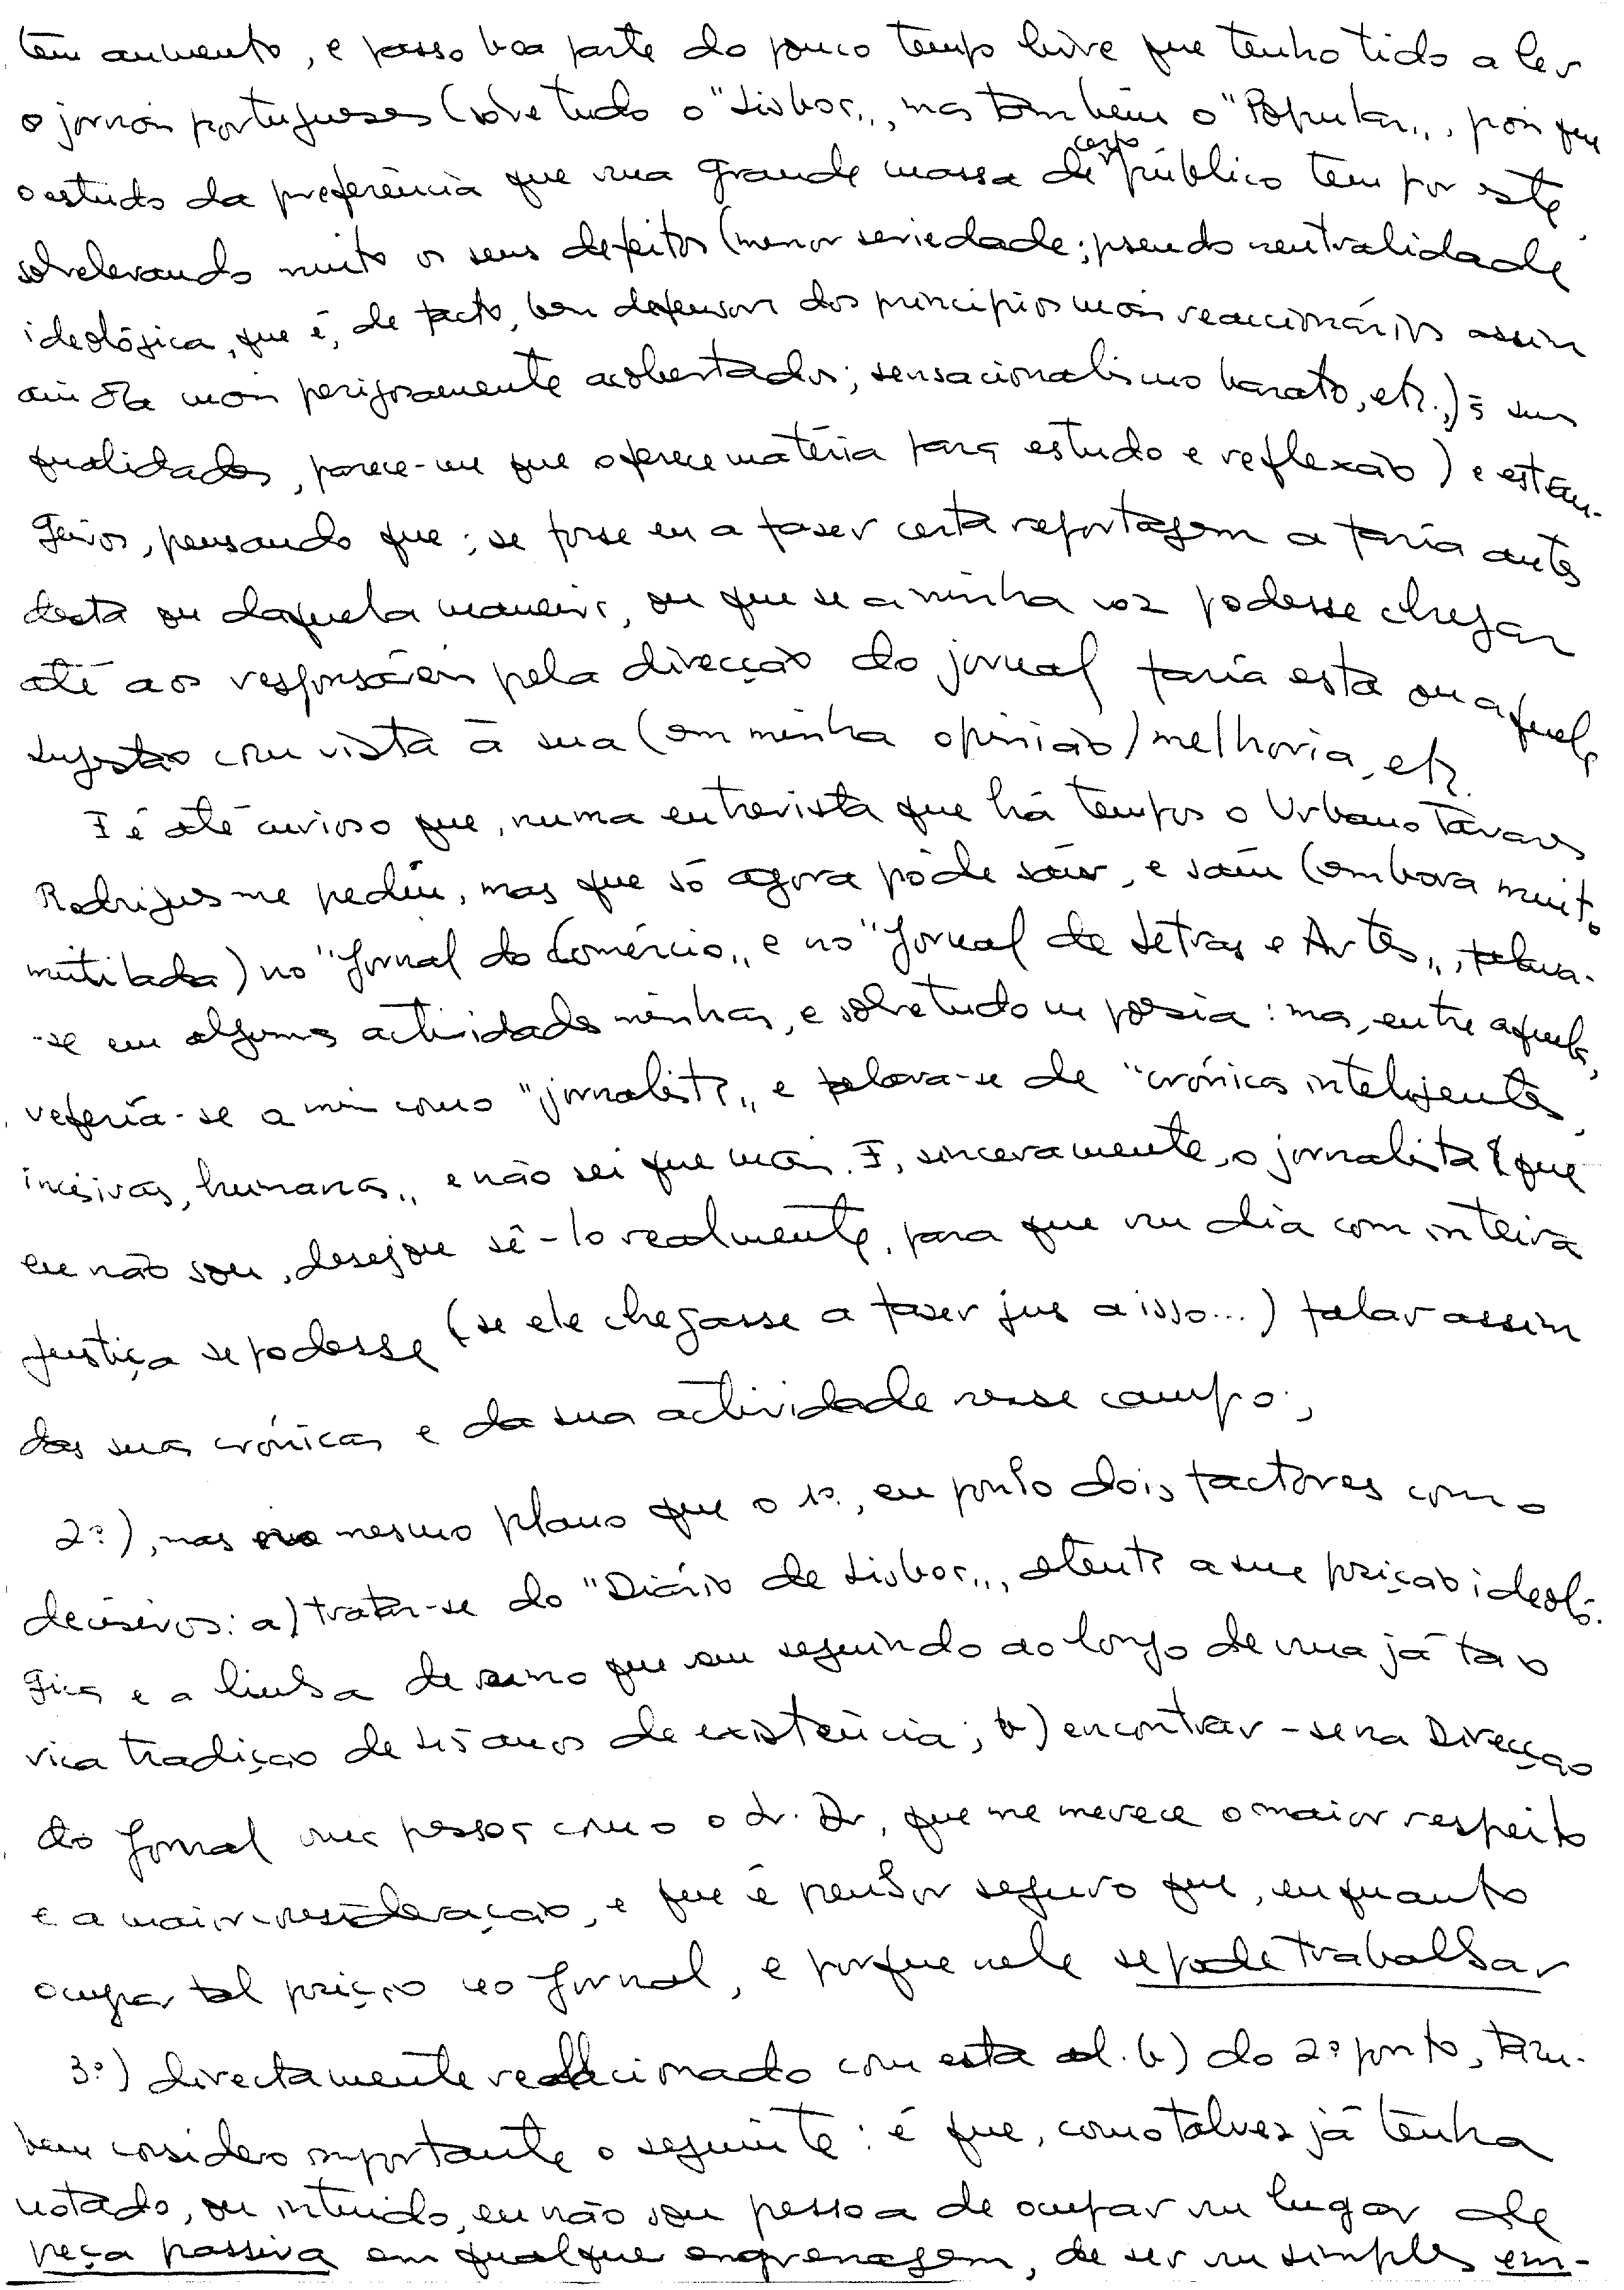 tem aumento, e passo boa parte do pouco tempo livre que tenho tido a ler
o jornais portugueses (sobretudo o "Lisboa,,, mas também o "Popular,,, pois que
o estudo da preferência que uma grande massa de certo público tem por este,
sobrelevando muito os seus defeitos (menor seriedade; pseudo neutralidade
ideológica, que é, de facto, bem defensora dos princípios mais reaccionários assim
ainda mais perigosamente acobertados; sensacionalismo barato, etc.,) às suas
qualidades, parece-me que oferece matéria para estudo e reflexão) e estran-
geiros, pensando que: se fosse eu a fazer certa reportagem a faria antes
desta ou daquela maneira, ou que se a minha voz podesse chegar
até aos responsáveis pela direcção do jornal faria esta ou aquela
sugestão com vista à sua (em minha opinião) melhoria, etc.
E é até curioso que, numa entrevista que há tempos o Urbano Tavares
Rodrigues me pediu, mas que só agora pôde sair, e saiu (embora muito
mutilada) no "Jornal do Comércio,, e no "Jornal de Letras e Artes,,, falava-
-se em algumas actividades minhas, e sobretudo na poesia: mas, entre aquelas,
referia-se a mim como "jornalista,, e falava-se de "crónicas inteligentes,
incisivas, humanas,, e não sei que mais. E, sinceramente, o jornalista que
eu não sou, desejou sê-lo realmente, para que um dia com inteira
justiça se podesse (se ele chegasse a fazer jus a isso...) falar assim
das suas crónicas e da sua actividade nesse campo;
2º), mas no mesmo plano que o 1º, eu ponho dois factores como
decisivos: a) tratar-se do "Diário de Lisboa,,, atenta a sua posição ideoló-
gica e a linha de rumo que vem seguindo ao longo de uma já tão
rica tradição de 45 anos de existência; b) encontrar-se na Direcção
do Jornal uma pessoa como o dr. Dr, que me merece o maior respeito
e a maior consideração, e que é penhor seguro que, enquanto
ocupar tal posição no Jornal, e porque nele se pode trabalhar
3º) directamente relacionado com esta al. b) do 2º ponto, tam-
bém considero importante o seguinte: é que, como talvez já tenha
notado, ou intuido, eu não sou pessoa de ocupar um lugar de
peça passiva em qualquer engrenagem, de ser um simples em-